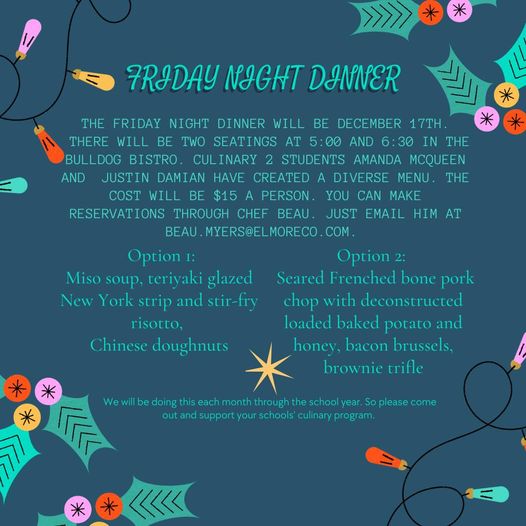 FRIDAY NIGHT DINNER
THE FRIDAY NIGHT DINNER WILL BE DECEMBER 17TH.
THERE WILL BE TWO SEATINGS AT 5:00 AND 6:30 IN THE
BULLDOG BISTRO. CULINARY 2 STUDENTS AMANDA MCQUEEN
AND JUSTIN DAMIAN HAVE CREATED A DIVERSE MENU. THE
COST WILL BE $15 A PERSON. YOU CAN MAKE
RESERVATIONS THROUGH CHEF BEAU. JUST EMAIL HIM AT
BEAU.MYERS@ELMORECO.COM.
Option 1:
Miso soup, teriyaki glazed
New York strip and stir-fry
risotto,
Chinese doughnuts
Option 2:
Seared Frenched bone pork
chop with deconstructed
loaded baked potato and
honey, bacon brussels,
brownie trifle
We will be doing this each month through the school year. So please come
out and support your schools' culinary program.